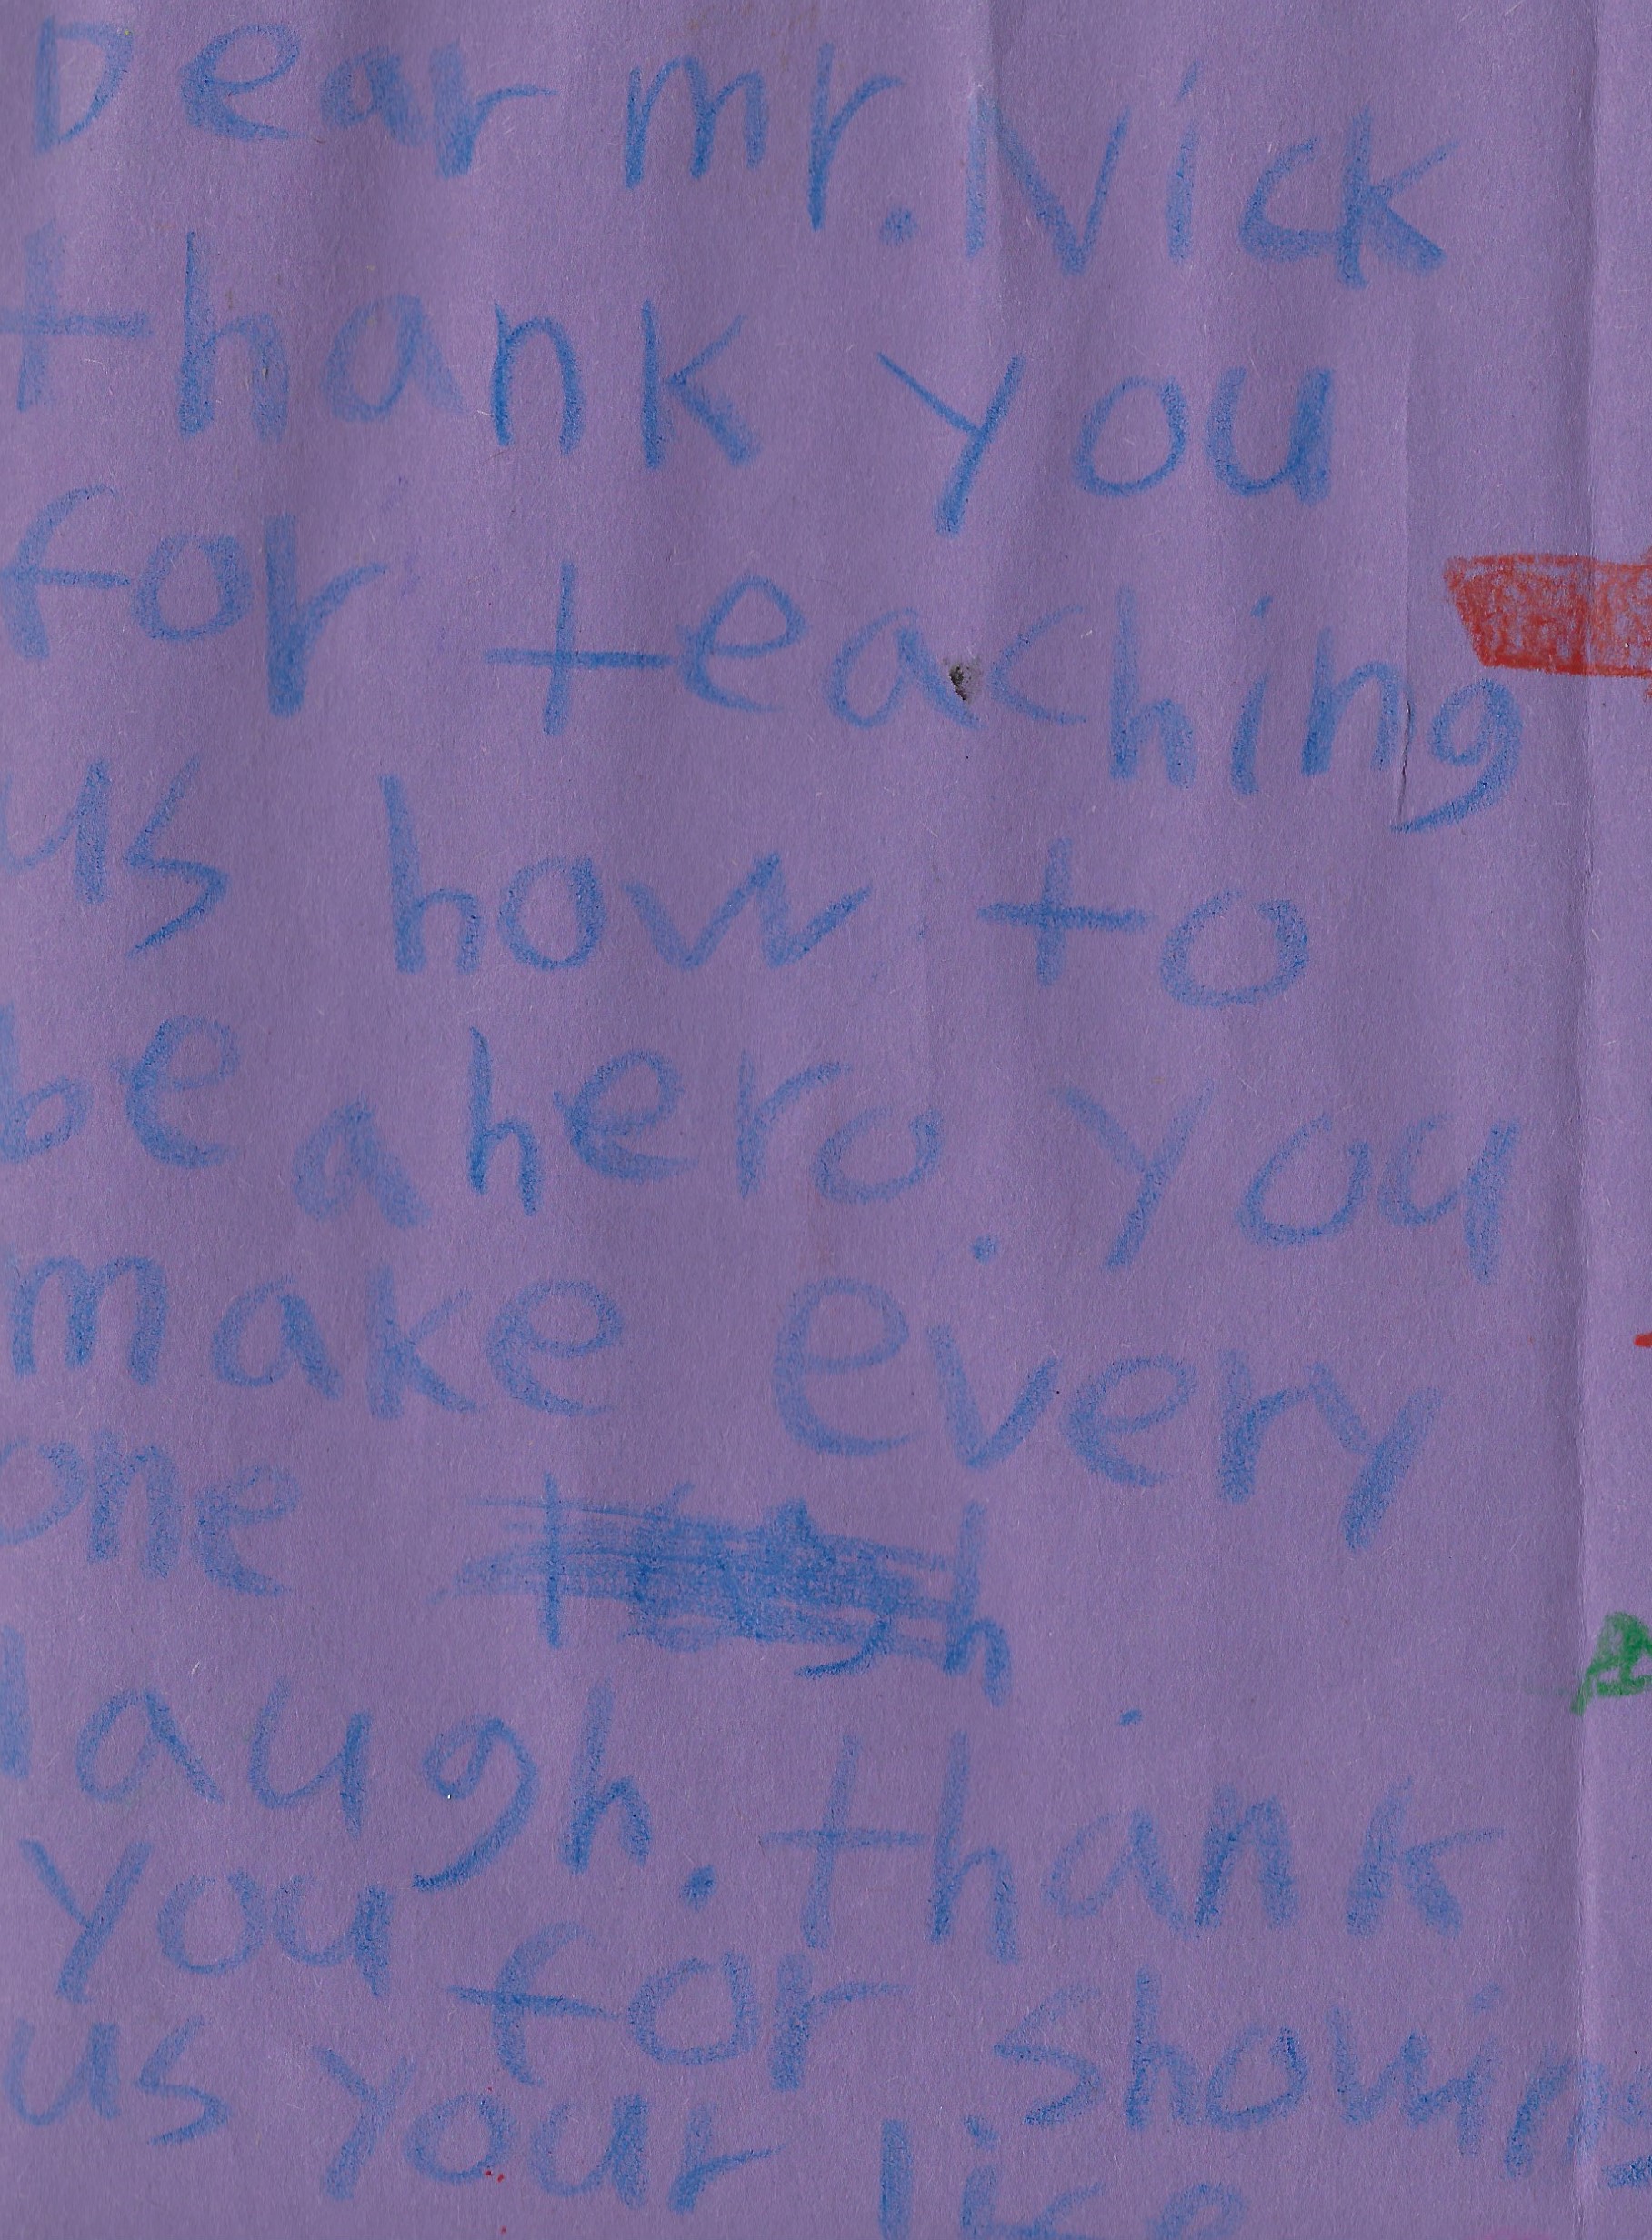 Dear mr. Nick
thank you
for teaching
us how to
be a hero. you
make every
one
laugh. thank
you for showing
us your